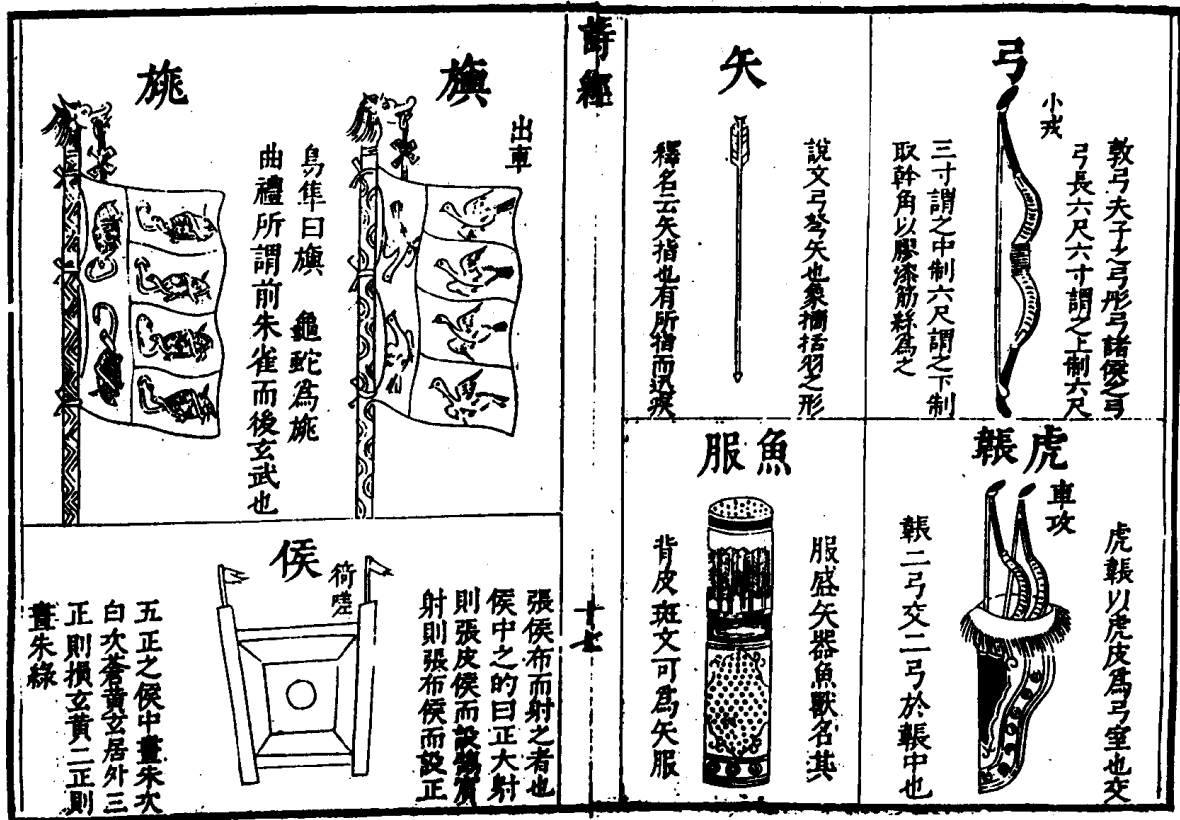 弓
小戎
敦弓天子之弓彤弓諸侯之弓
弓長六尺六寸謂之上制六尺
三寸謂之中制六尺謂之下制
取幹角以膠漆筋絲為之
矢
說文弓弩矢也象鏑括羽之形
釋名云矢指也有所指而迅疾
虎韔
車攻
虎韔以虎皮為弓室也交
韔二弓交二弓於韔中也
魚服
服盛矢器魚獸名其
背皮斑文可為矢服
詩經
十七
旟
出車
鳥隼曰旟 龜蛇為旐
曲禮所謂前朱雀而後玄武也
旐
侯
猗嗟
張侯布而射之者也
侯中之的曰正大射
則張皮侯而設鵠賓
射則張布侯而設正
五正之侯中畫朱次
白次蒼黃玄居外三
正則損玄黃二正則
畫朱綠